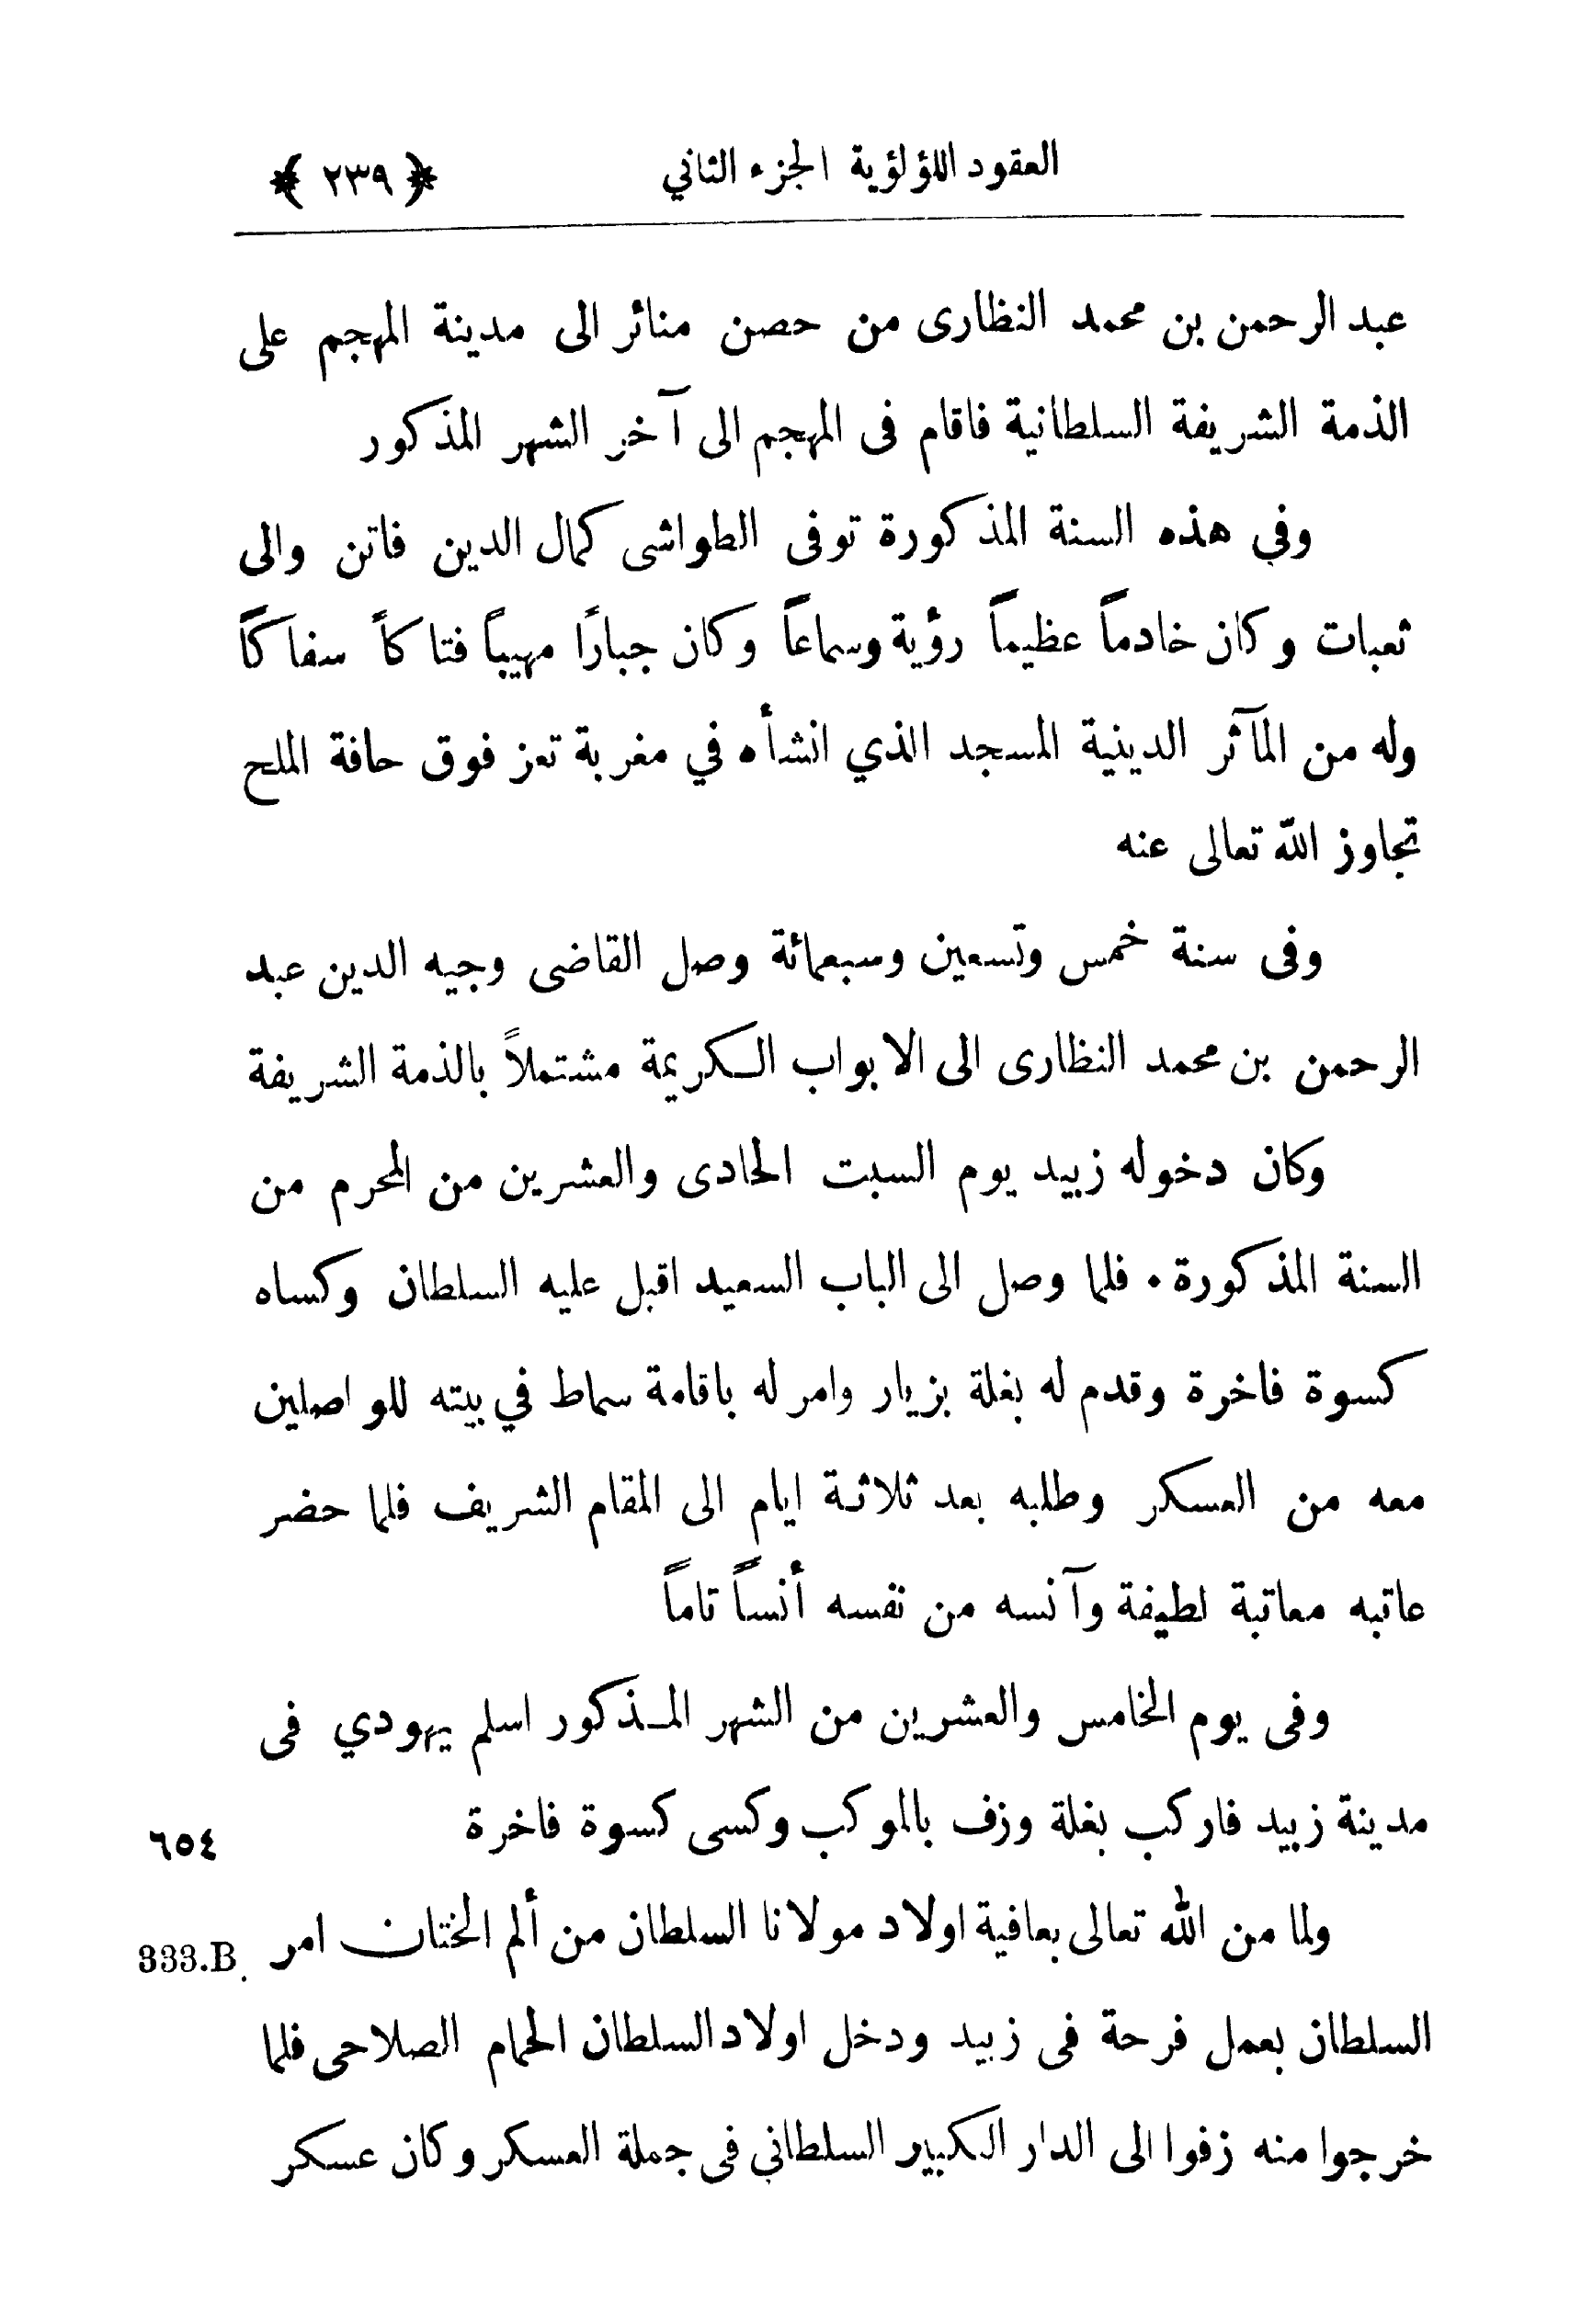 العقود اللؤلؤية الجزء الثاني ﴿ ٢٣٩ ﴾
عبد الرحمن بن محمد النظارى من حصن منائر الى مدينة المهجم على
الذمة الشريفة السلطانية فاقام فى المهجم الى آخر الشهر المذكور
وفي هذه السنة المذكورة توفى الطواشى كمال الدين فاتن والى
ثعبات وكان خادماً عظيماً رؤية وسماعاً وكان جبارًا مهيباً فتاكاً سفاكاً
وله من المآثر الدينية المسجد الذي انشأه في مغربة تعز فوق حافة الملح
تجاوز الله تعالى عنه
وفى سنة خمس وتسعين وسبعمائة وصل القاضى وجيه الدين عبد
الرحمن بن محمد النظارى الى الابواب الكريمة مشتملاً بالذمة الشريفة
وكان دخوله زبيد يوم السبت الحادى والعشرين من المحرم من
السنة المذكورة . فلما وصل الى الباب السعيد اقبل عليه السلطان وكساه
كسوة فاخرة وقدم له بغلة بزيار وامر له باقامة سماط في بيته للواصلين
معه من العسكر وطلبه بعد ثلاثة ايام الى المقام الشريف فلما حضر
عاتبه معاتبة لطيفة وآنسه من نفسه أنساً تاماً
وفى يوم الخامس والعشرين من الشهر المـذكور اسلم يهودي فى
مدينة زبيد فاركب بغلة وزف بالموكب وكسى كسوة فاخرة ٦٥٤
ولما من الله تعالى بعافية اولاد مولانا السلطان من ألم الختان امر 333.B.
السلطان بعمل فرحة فى زبيد ودخل اولاد السلطان الحمام الصلاحى فلما
خرجوا منه زفوا الى الدار الكبير السلطاني فى جملة العسكر وكان عسكر